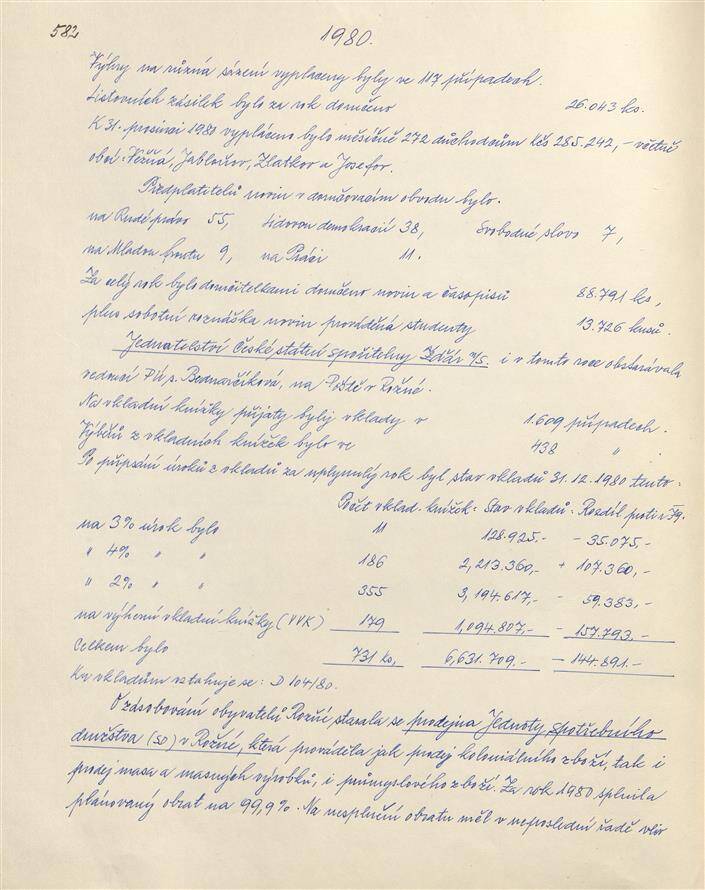 582
1980.
Výhry na různá sázení vyplaceny byly ve 117 případech.
Listovních zásilek bylo za rok doručeno 26.043 ks.
K 31. prosinci 1980 vypláceno bylo měsíčně 272 důchodcům Kčs 285.242,- včetně
obcí: Věžná, Jabloňov, Zlatkov a Josefov.
Předplatitelů novin v doručovacím obvodu bylo:
na Rudé právo 55, Lidovou demokracii 38, Svobodné slovo 7,
na Mladou frontu 9, na Práci 11.
Za celý rok bylo doručitelkami doručeno novin a časopisů 88.791 ks,
plus sobotní roznáška novin prováděná studenty 13.726 kusů.
Jednatelství České státní spořitelny Žďár n/S. i v tomto roce obstarávala
vedoucí PÚ s. Bednarčíková, na Poště v Rožné.
Na vkladní knížky přijaty byly vklady v 1.609 případech.
Výběrů z vkladních knížek bylo ve 438 " .
Po připsání úroků z vkladů za uplynulý rok byl stav vkladů 31.12.1980 tento:
Počet vklad. knížek: Stav vkladů: Rozdíl proti r. 79.
na 3% úrok bylo 11 128.925,- - 35.075,-
" 4% " " 186 2,213.360,- + 107.360,-
" 2% " " 355 3,194.617,- - 59.383,-
na výherní vkladní knížky (VVK) 179 1,094.807,- - 157.793,-
Celkem bylo 731 ks, 6,631.709,- - 144.891,-
Ku vkladům vztahuje se: D 104/80.
O zásobování obyvatelů Rožné starala se prodejna Jednoty spotřebního
družstva (SD) v Rožné, která prováděla jak prodej koloniálního zboží, tak i
prodej masa a masných výrobků, i průmyslového zboží. Za rok 1980 splnila
plánovaný obrat na 99,9%. Na nesplnění obratu měl v neposlední řadě vliv